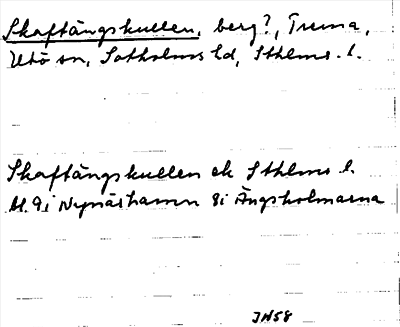 Skaftängskullen, berg?, Truma,
Utö sn, Sotholms hd, Sthlms l.
Skaftängskullen ek Sthlms l.
bl. 9i Nynäshamn 8i Ängsholmarna
JH58